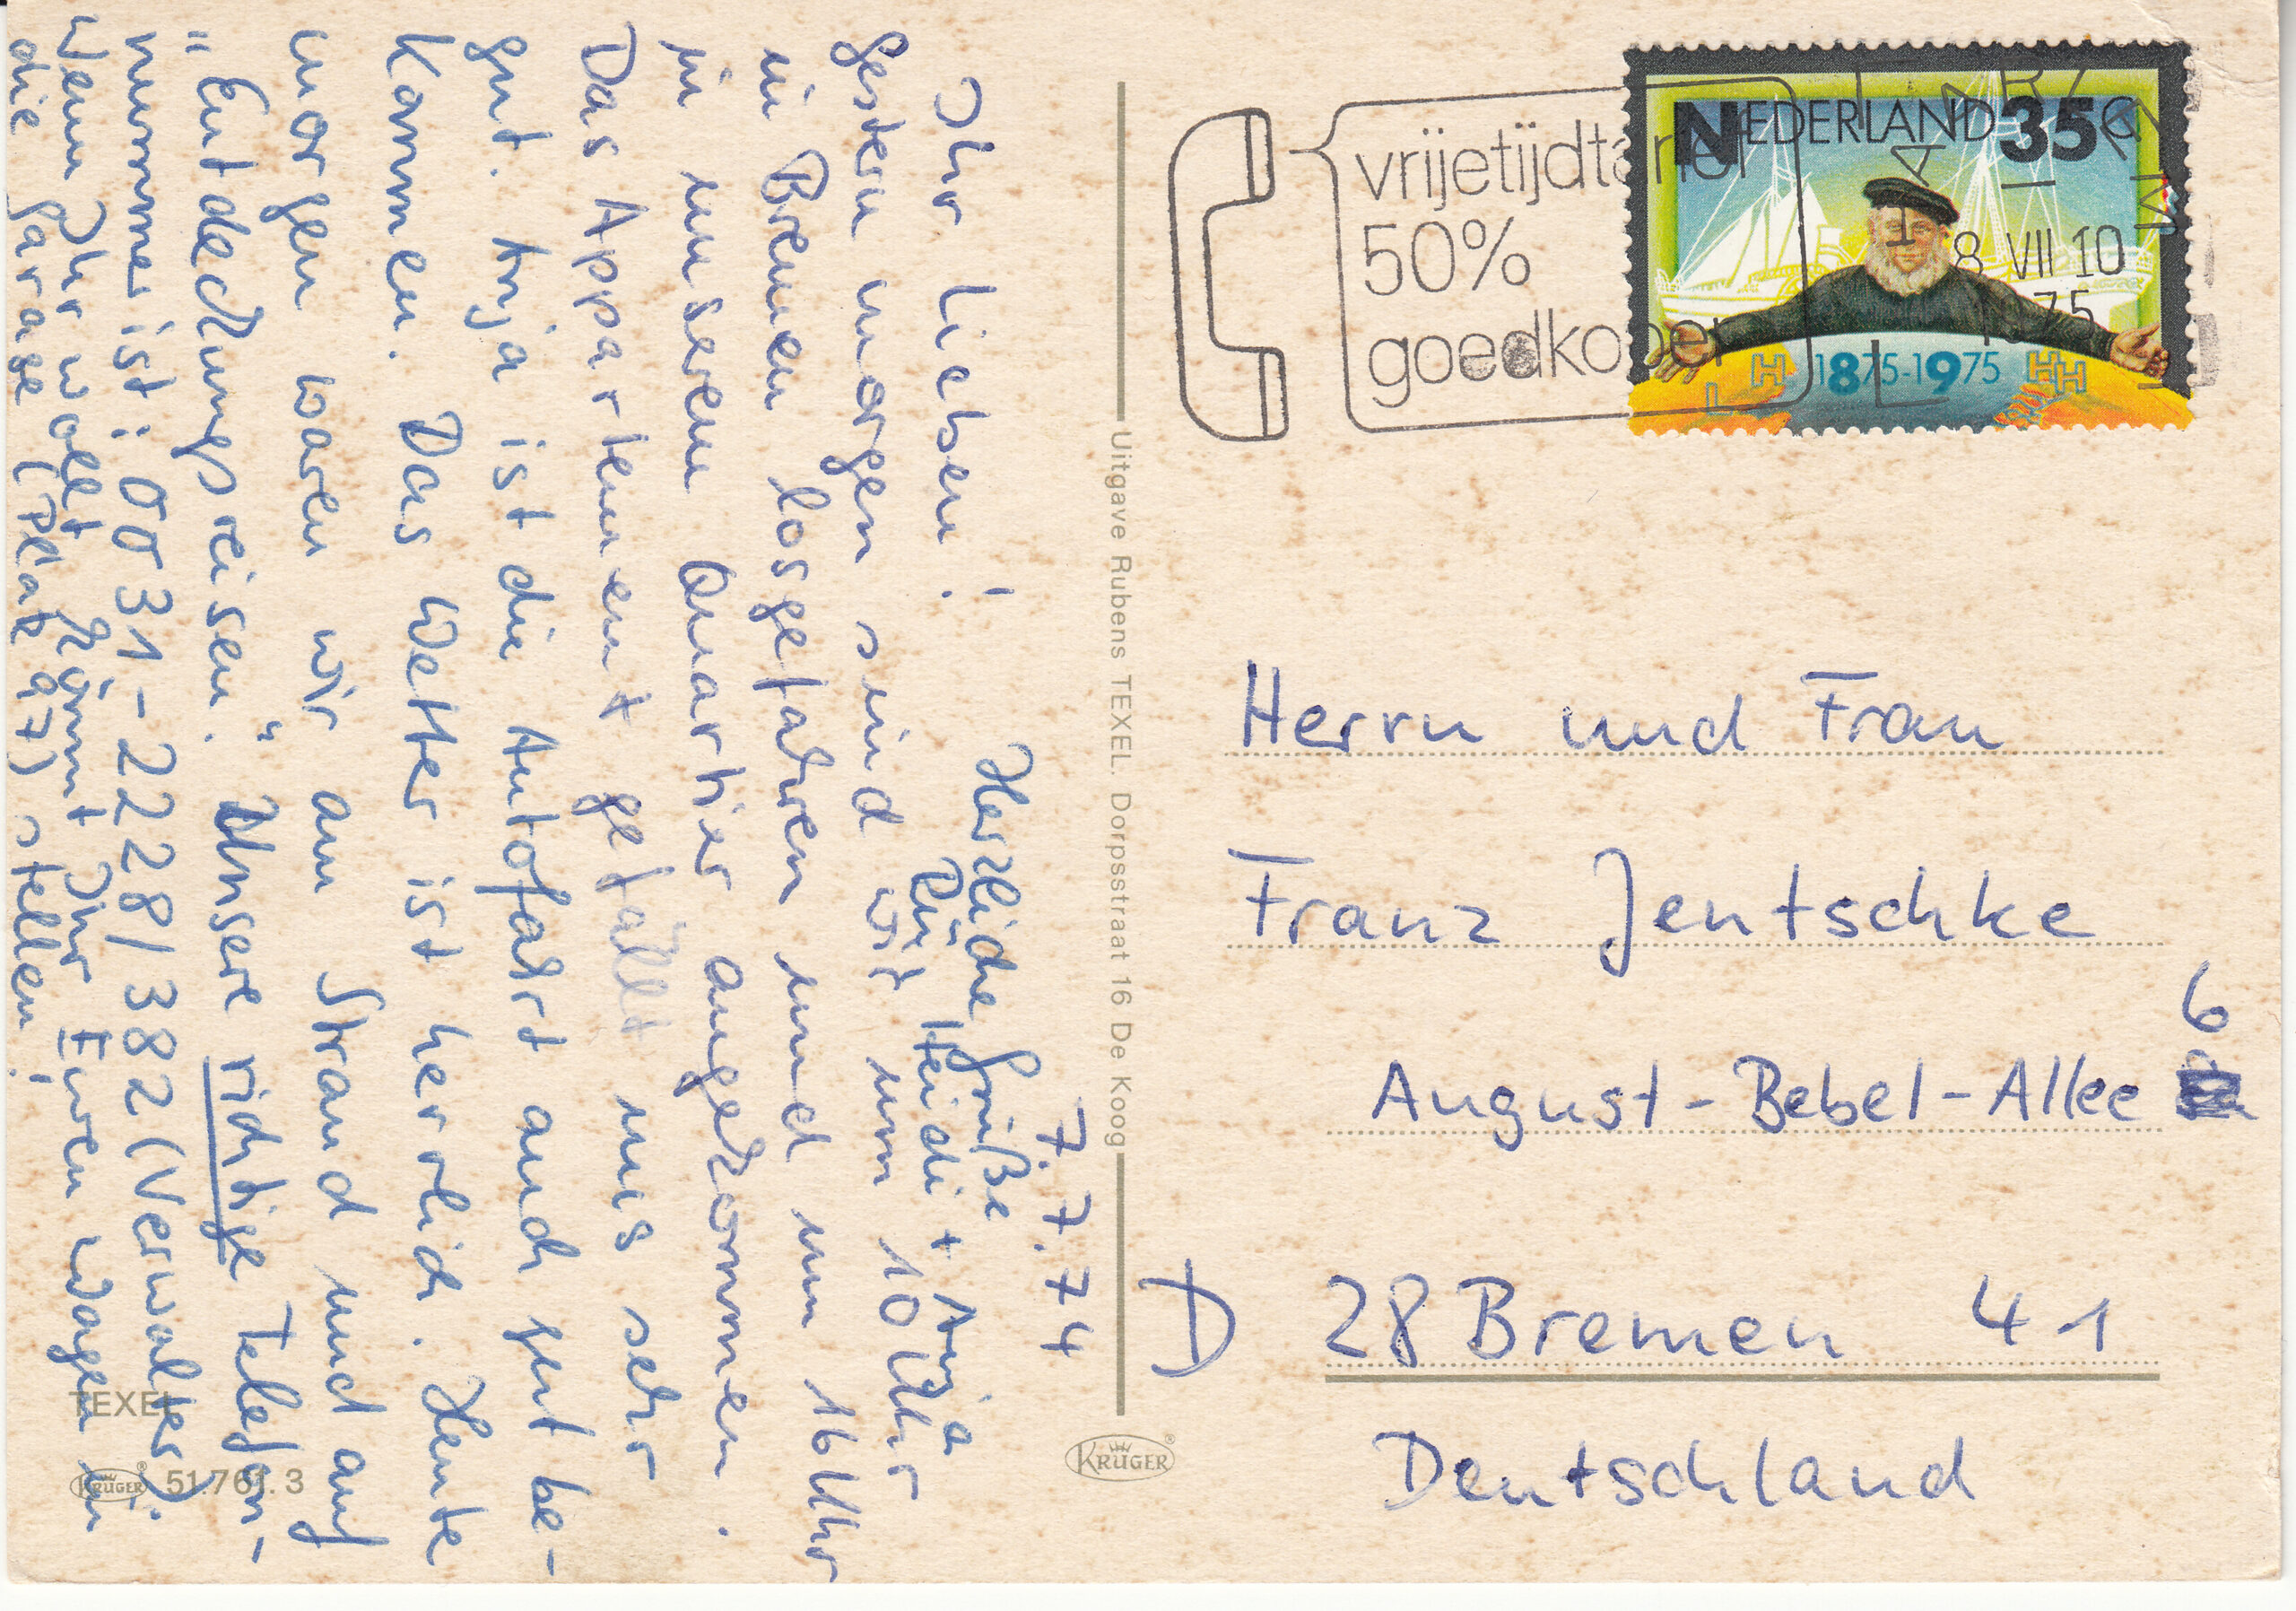 7.7.74
Ihr Lieben!
gestern morgen sind wir um 10 Uhr
in Bremen losgefahren und um 16 Uhr
in unserem Quartier angekommen.
Das Appartement gefällt uns sehr
gut. Anja ist die Autofahrt auch gut be-
kommen. Das Wetter ist herrlich. Heute
morgen waren wir am Strand und auf
"Entdeckungsreisen." Unsere richtige Telefon-
nummer ist: 0031-2228/382 (Verwalter).
Wenn Ihr wollt, könnt Ihr Euren Wagen in
die Garage (Platz 97) stellen!
Herzliche Grüße
Heidi + Anja
Uitgave Rubens TEXEL. Dorpsstraat 16 De Koog
TEXEL
KRÜGER 51.761.3
KRÜGER
vrijetijdtarief
50%
goedkoper
NEDERLAND 35 c
8 VII 10
1975
1875-1975
Herrn und Frau
Franz Jentschke
August-Bebel-Allee 6
D 28 Bremen 41
Deutschland